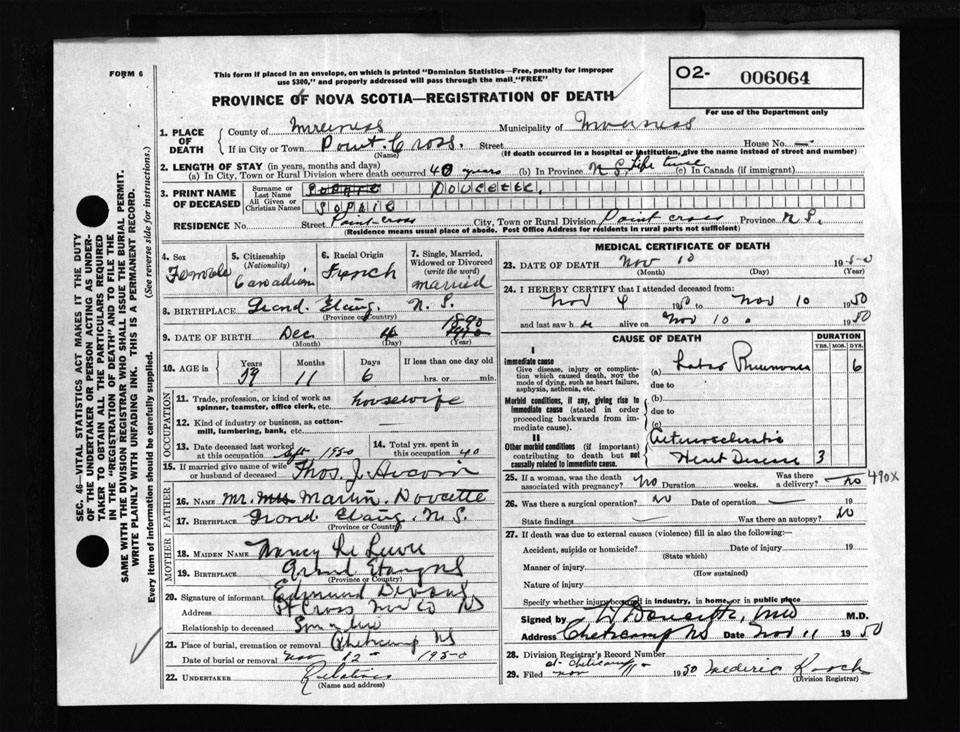 FORM 6
This form if placed in an envelope, on which is printed "Dominion Statistics—Free, penalty for improper
use $300," and properly addressed will pass through the mail "FREE"
O2- 006064
For use of the Department only
PROVINCE OF NOVA SCOTIA—REGISTRATION OF DEATH
1. PLACE OF DEATH
County of Inverness Municipality of Inverness
If in City or Town Point Cross. Street House No. —
(Name) (If death occurred in a hospital or institution, give the name instead of street and number)
2. LENGTH OF STAY (in years, months and days)
(a) In City, Town or Rural Division where death occurred 40 years (b) In Province N.S. Life time (c) In Canada (if immigrant)
3. PRINT NAME OF DECEASED
Surname or Last Name DOUCETTE.
All Given or Christian Names SOPHIE
RESIDENCE No. Street Point cross City, Town or Rural Division Point cross Province N.S.
(Residence means usual place of abode. Post Office Address for residents in rural parts not sufficient)
4. Sex
Female
5. Citizenship (Nationality)
Canadian
6. Racial Origin
French
7. Single, Married, Widowed or Divorced (write the word)
married
8. BIRTHPLACE Grand Etang, N.S.
(Province or Country)
9. DATE OF BIRTH Dec 4 1890
(Month) (Day) (Year)
10. AGE in Years Months Days If less than one day old
59 11 6 hrs. or min.
OCCUPATION
11. Trade, profession, or kind of work as spinner, teamster, office clerk, etc. housewife
12. Kind of industry or business, as cotton-mill, lumbering, bank, etc. —
13. Date deceased last worked at this occupation Sept 1950
14. Total yrs. spent in this occupation 40
15. If married give name of wife or husband of deceased Thos. J.
FATHER
16. NAME Mr. Martin Doucette
17. BIRTHPLACE Grand Etang, N.S.
(Province or Country)
MOTHER
18. MAIDEN NAME Nancy
19. BIRTHPLACE Grand Etang NS
(Province or Country)
20. Signature of informant Edmund
Address Pt Cross Inv Co NS
Relationship to deceased Son in law
21. Place of burial, cremation or removal Cheticamp NS
Date of burial or removal Nov 12 - 1950
22. UNDERTAKER Relatives
(Name and address)
MEDICAL CERTIFICATE OF DEATH
23. DATE OF DEATH Nov 10 1950
(Month) (Day) (Year)
24. I HEREBY CERTIFY that I attended deceased from:
Nov 4 1950 to Nov 10 1950
and last saw h er alive on Nov 10 1950
CAUSE OF DEATH DURATION
YRS. MOS. DYS.
I
Immediate cause
Give disease, injury or complication which caused death, NOT the mode of dying, such as heart failure, asphyxia, asthenia, etc.
(a) Lobar Pneumonia 6
due to
Morbid conditions, if any, giving rise to immediate cause (stated in order proceeding backwards from immediate cause).
(b)
due to
(c)
II
Other morbid conditions (if important) contributing to death but not causally related to immediate cause.
Arteriosclerotic
Heart Disease 3
25. If a woman, was the death associated with pregnancy? no Duration weeks. Was there a delivery? no 490X
26. Was there a surgical operation? no Date of operation — 19
State findings — Was there an autopsy? no
27. If death was due to external causes (violence) fill in also the following:
Accident, suicide or homicide? Date of injury 19
(State which)
Manner of injury
(How sustained)
Nature of injury
Specify whether injury occurred in industry, in home, or in public place
Signed by W Doucette, MD M.D.
Address Cheticamp NS Date Nov 11 1950
28. Division Registrar's Record Number
29. Filed at Cheticamp Nov 11 1950 Mederic Roach
(Division Registrar)
SEC. 46—VITAL STATISTICS ACT MAKES IT THE DUTY
OF THE UNDERTAKER OR PERSON ACTING AS UNDER-
TAKER TO OBTAIN ALL THE PARTICULARS REQUIRED
IN THE "REGISTRATION OF DEATH" AND TO FILE THE
SAME WITH THE DIVISION REGISTRAR WHO SHALL ISSUE THE BURIAL PERMIT.
WRITE PLAINLY WITH UNFADING INK. THIS IS A PERMANENT RECORD.
Every item of information should be carefully supplied. (See reverse side for instructions.)